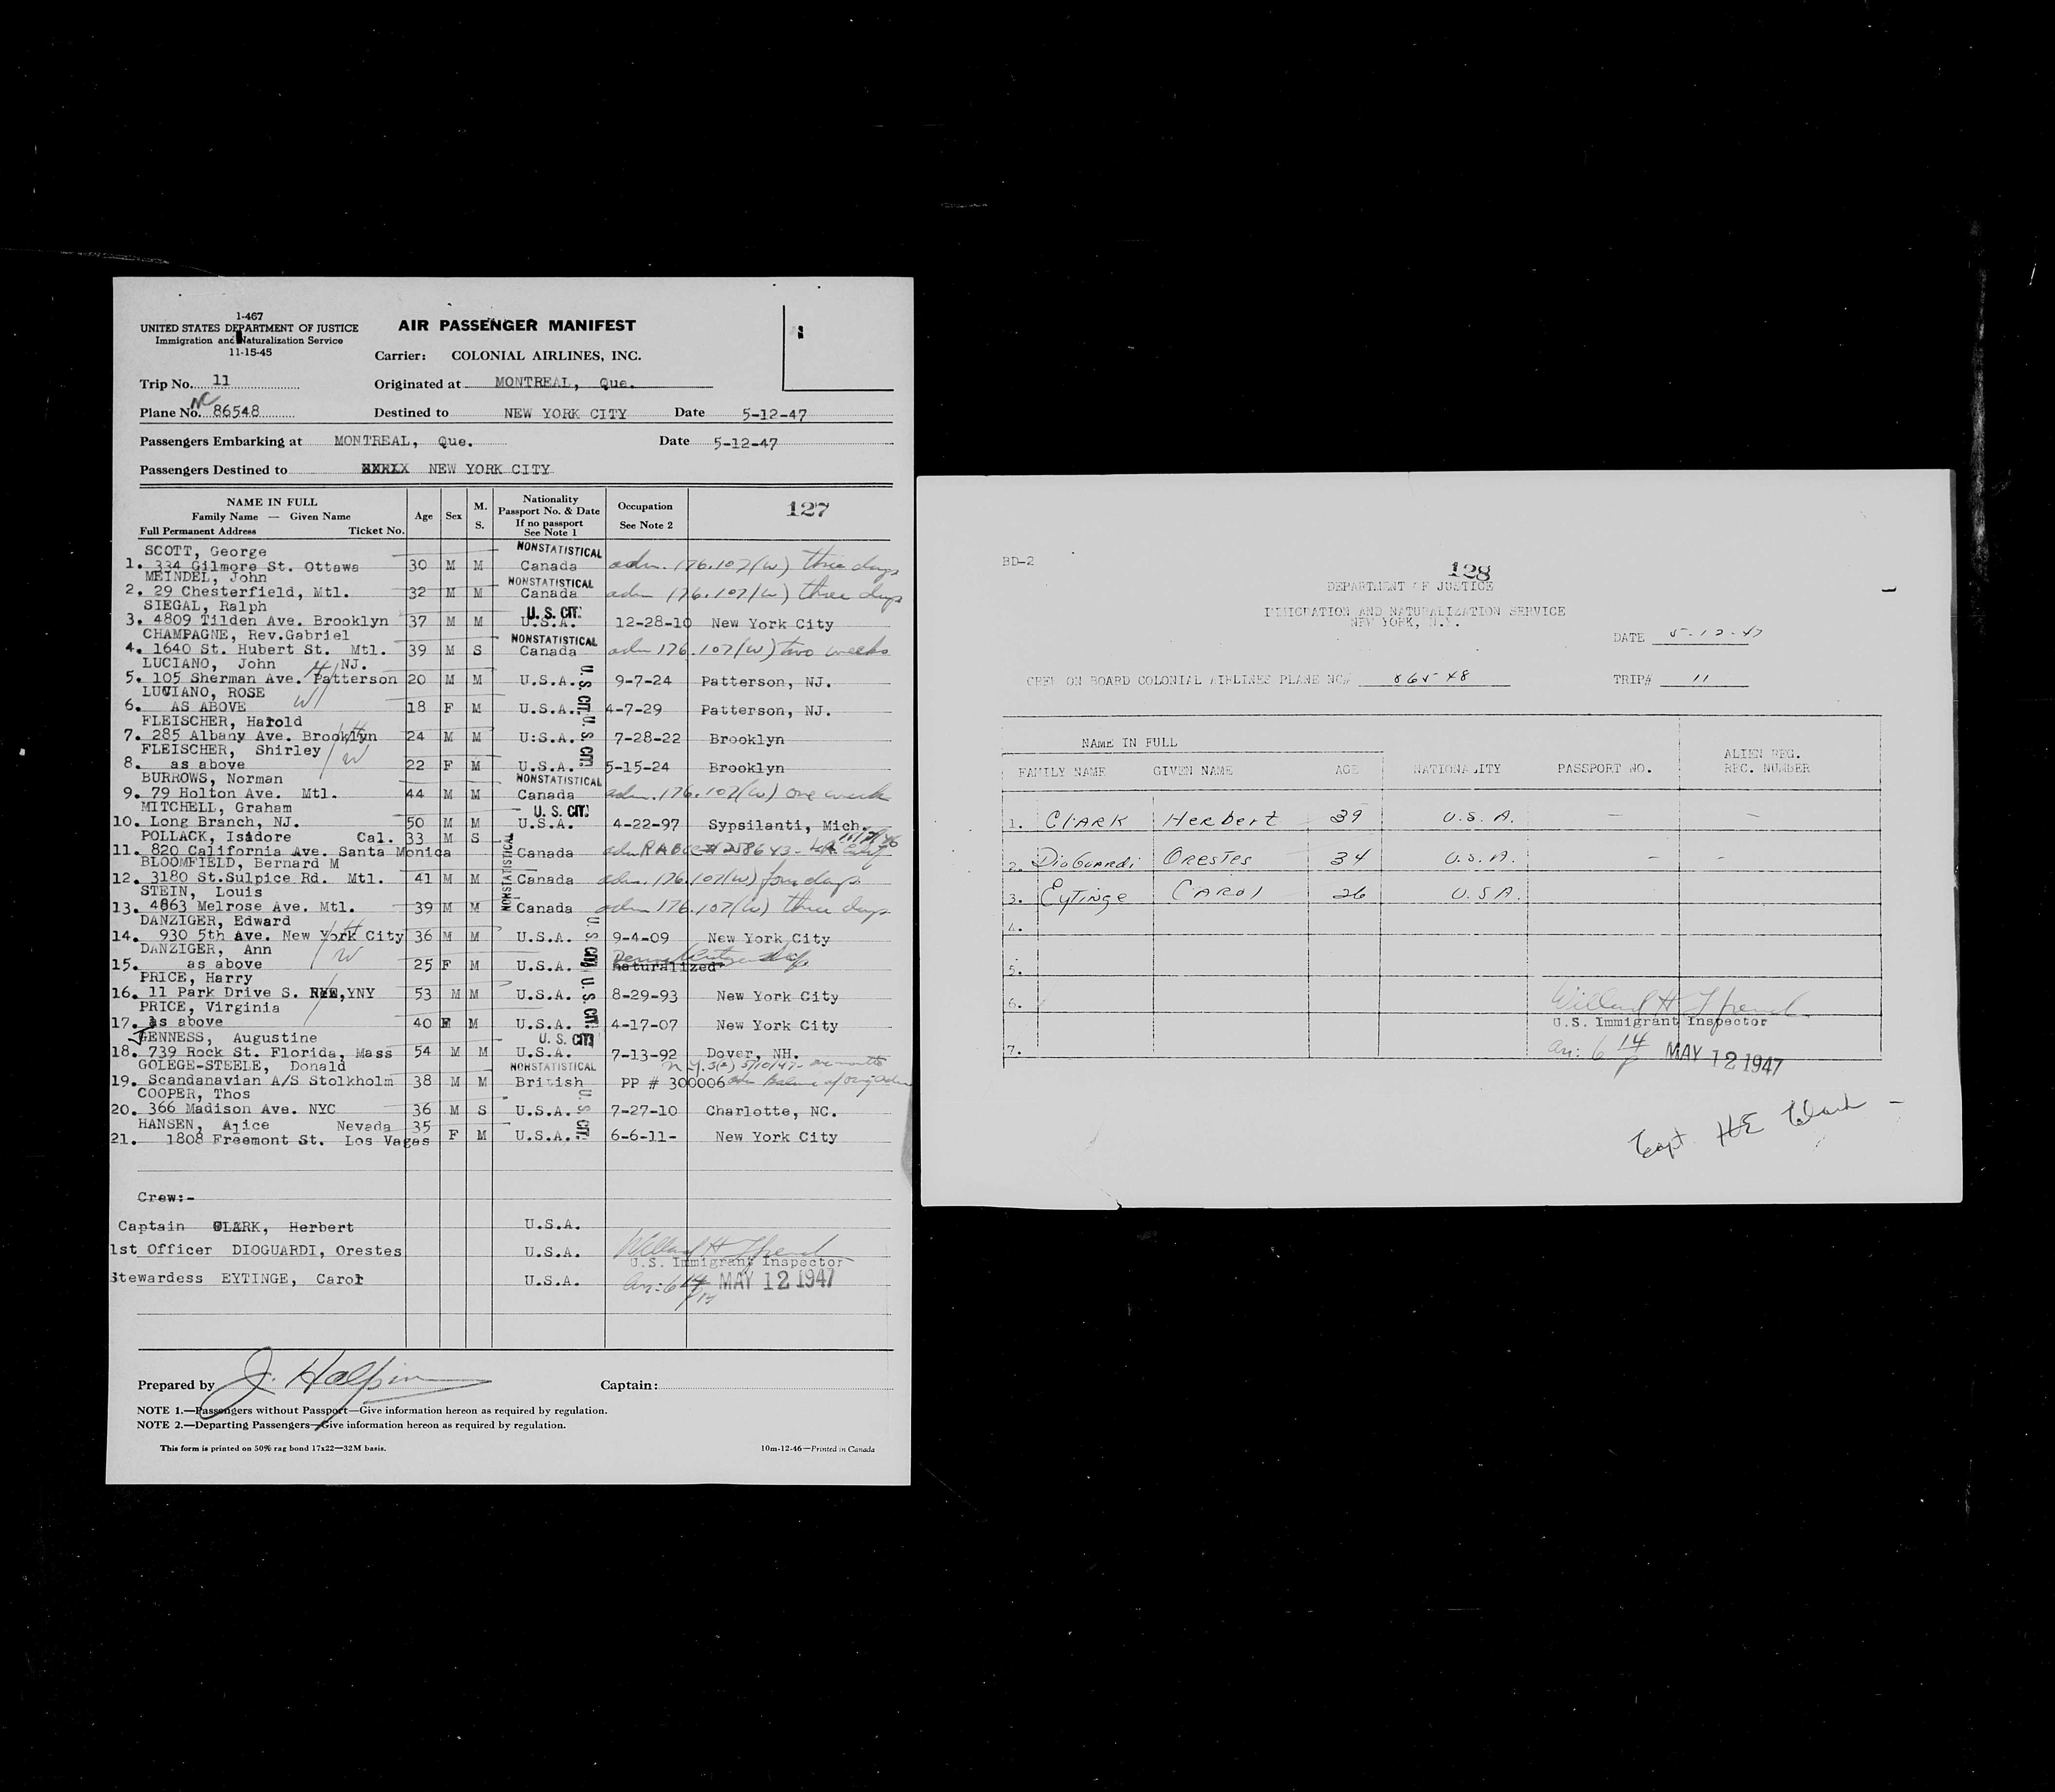 1-467
UNITED STATES DEPARTMENT OF JUSTICE
Immigration and Naturalization Service
11-15-45
AIR PASSENGER MANIFEST
Carrier: COLONIAL AIRLINES, INC.
Trip No. 11 Originated at MONTREAL, Que.
Plane No. NC 86548 Destined to NEW YORK CITY Date 5-12-47
Passengers Embarking at MONTREAL, Que. Date 5-12-47
Passengers Destined to NEW YORK CITY
NAME IN FULL
Family Name — Given Name
Full Permanent Address Ticket No.
Age Sex M. S.
Nationality
Passport No. & Date
If no passport
See Note 1
Occupation
See Note 2
127
SCOTT, George NONSTATISTICAL
1. 334 Gilmore St. Ottawa 30 M M Canada adm. 176.107(W) three days
MEINDEL, John NONSTATISTICAL
2. 29 Chesterfield, Mtl. 32 M M Canada adm 176.107(W) three days
SIEGAL, Ralph U. S. CIT.
3. 4809 Tilden Ave. Brooklyn 37 M M U.S.A. 12-28-10 New York City
CHAMPAGNE, Rev.Gabriel NONSTATISTICAL
4. 1640 St. Hubert St. Mtl. 39 M S Canada adm 176.107(W) two weeks
LUCIANO, John H NJ.
5. 105 Sherman Ave. Patterson 20 M M U.S.A. U. S. CIT. 9-7-24 Patterson, NJ.
LUCIANO, ROSE W
6. AS ABOVE 18 F M U.S.A. 4-7-29 Patterson, NJ.
FLEISCHER, Harold H
7. 285 Albany Ave. Brooklyn 24 M M U:S.A. U. S. CIT. 7-28-22 Brooklyn
FLEISCHER, Shirley W
8. as above 22 F M U.S.A. 5-15-24 Brooklyn
BURROWS, Norman NONSTATISTICAL
9. 79 Holton Ave. Mtl. 44 M M Canada adm. 176.107(W) one week
MITCHELL, Graham U. S. CIT.
10. Long Branch, NJ. 50 M M U.S.A. 4-22-97 Sypsilanti, Mich.
POLLACK, Isidore Cal. 33 M S
11. 820 California Ave. Santa Monica NONSTATISTICAL Canada adm RABCC# 258643
BLOOMFIELD, Bernard M
12. 3180 St.Sulpice Rd. Mtl. 41 M M Canada adm. 176.107(W) four days
STEIN, Louis
13. 4863 Melrose Ave. Mtl. 39 M M Canada adm 176.107(W) three days
DANZIGER, Edward H
14. 930 5th Ave. New York City 36 M M U.S.A. U. S. CIT. 9-4-09 New York City
DANZIGER, Ann W
15. as above 25 F M U.S.A. naturalized
PRICE, Harry
16. 11 Park Drive S. RYE, NY 53 M M U.S.A. U. S. CIT. 8-29-93 New York City
PRICE, Virginia
17. as above 40 F M U.S.A. 4-17-07 New York City
JENNESS, Augustine U. S. CIT.
18. 739 Rock St. Florida, Mass 54 M M U.S.A. 7-13-92 Dover, NH.
GOLEGE-STEELE, Donald NONSTATISTICAL
19. Scandanavian A/S Stolkholm 38 M M British PP # 300006
COOPER, Thos
20. 366 Madison Ave. NYC 36 M S U.S.A. U. S. CIT. 7-27-10 Charlotte, NC.
HANSEN, Alice Nevada 35
21. 1808 Freemont St. Los Vages F M U.S.A. 6-6-11- New York City
Crew:-
Captain CLARK, Herbert U.S.A.
1st Officer DIOGUARDI, Orestes U.S.A.
U.S. Immigrant Inspector
Stewardess EYTINGE, Carol U.S.A.
Arr: 6 14 PM MAY 12 1947
Prepared by J. Halpin Captain:
NOTE 1.—Passengers without Passport—Give information hereon as required by regulation.
NOTE 2.—Departing Passengers—Give information hereon as required by regulation.
This form is printed on 50% rag bond 17x22—32M basis. 10m-12-46—Printed in Canada
BD-2
128
DEPARTMENT OF JUSTICE
IMMIGRATION AND NATURALIZATION SERVICE
NEW YORK, N.Y.
DATE 5-12-47
CREW ON BOARD COLONIAL AIRLINES PLANE NC# 86548 TRIP# 11
NAME IN FULL
FAMILY NAME GIVEN NAME AGE NATIONALITY PASSPORT NO. ALIEN REG. REC. NUMBER
1. CLARK Herbert 39 U.S.A. — —
2. DioGuardi Orestes 34 U.S.A. — —
3. Eytinge CAROL 26 U.S.A.
4.
5.
6.
U.S. Immigrant Inspector
7. Arr: 6 14 P MAY 12 1947
Capt. HE Clark